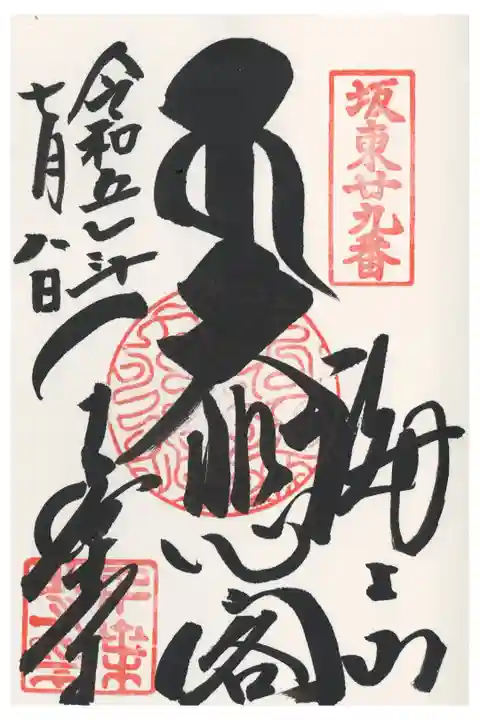 坂東廿九番
海上山
大悲閣
令和五年
七月八日
千葉寺